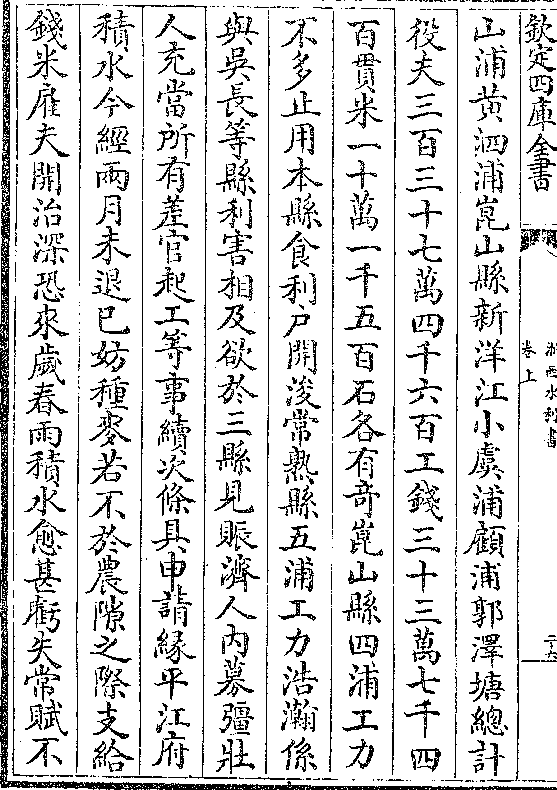 欽定四庫全書
浙西水利書
卷上
山浦黄泗浦崑山縣新洋江小虞浦顧浦郭澤塘總計
役夫三百三十七萬四千六百工錢三十三萬七千四
百貫米一十萬一千五百石各有竒崑山縣四浦工力
不多止用本縣食利戸開浚常熟縣五浦工力浩瀚係
與吳長等縣利害相及欲於三縣見賑濟人内募彊壯
人充當所有差官起工等事續次條具申請縁平江府
積水今經兩月未退已妨種麥若不於農隙之際支給
錢米雇夫開治深恐來歲春雨積水愈甚虧失常賦不